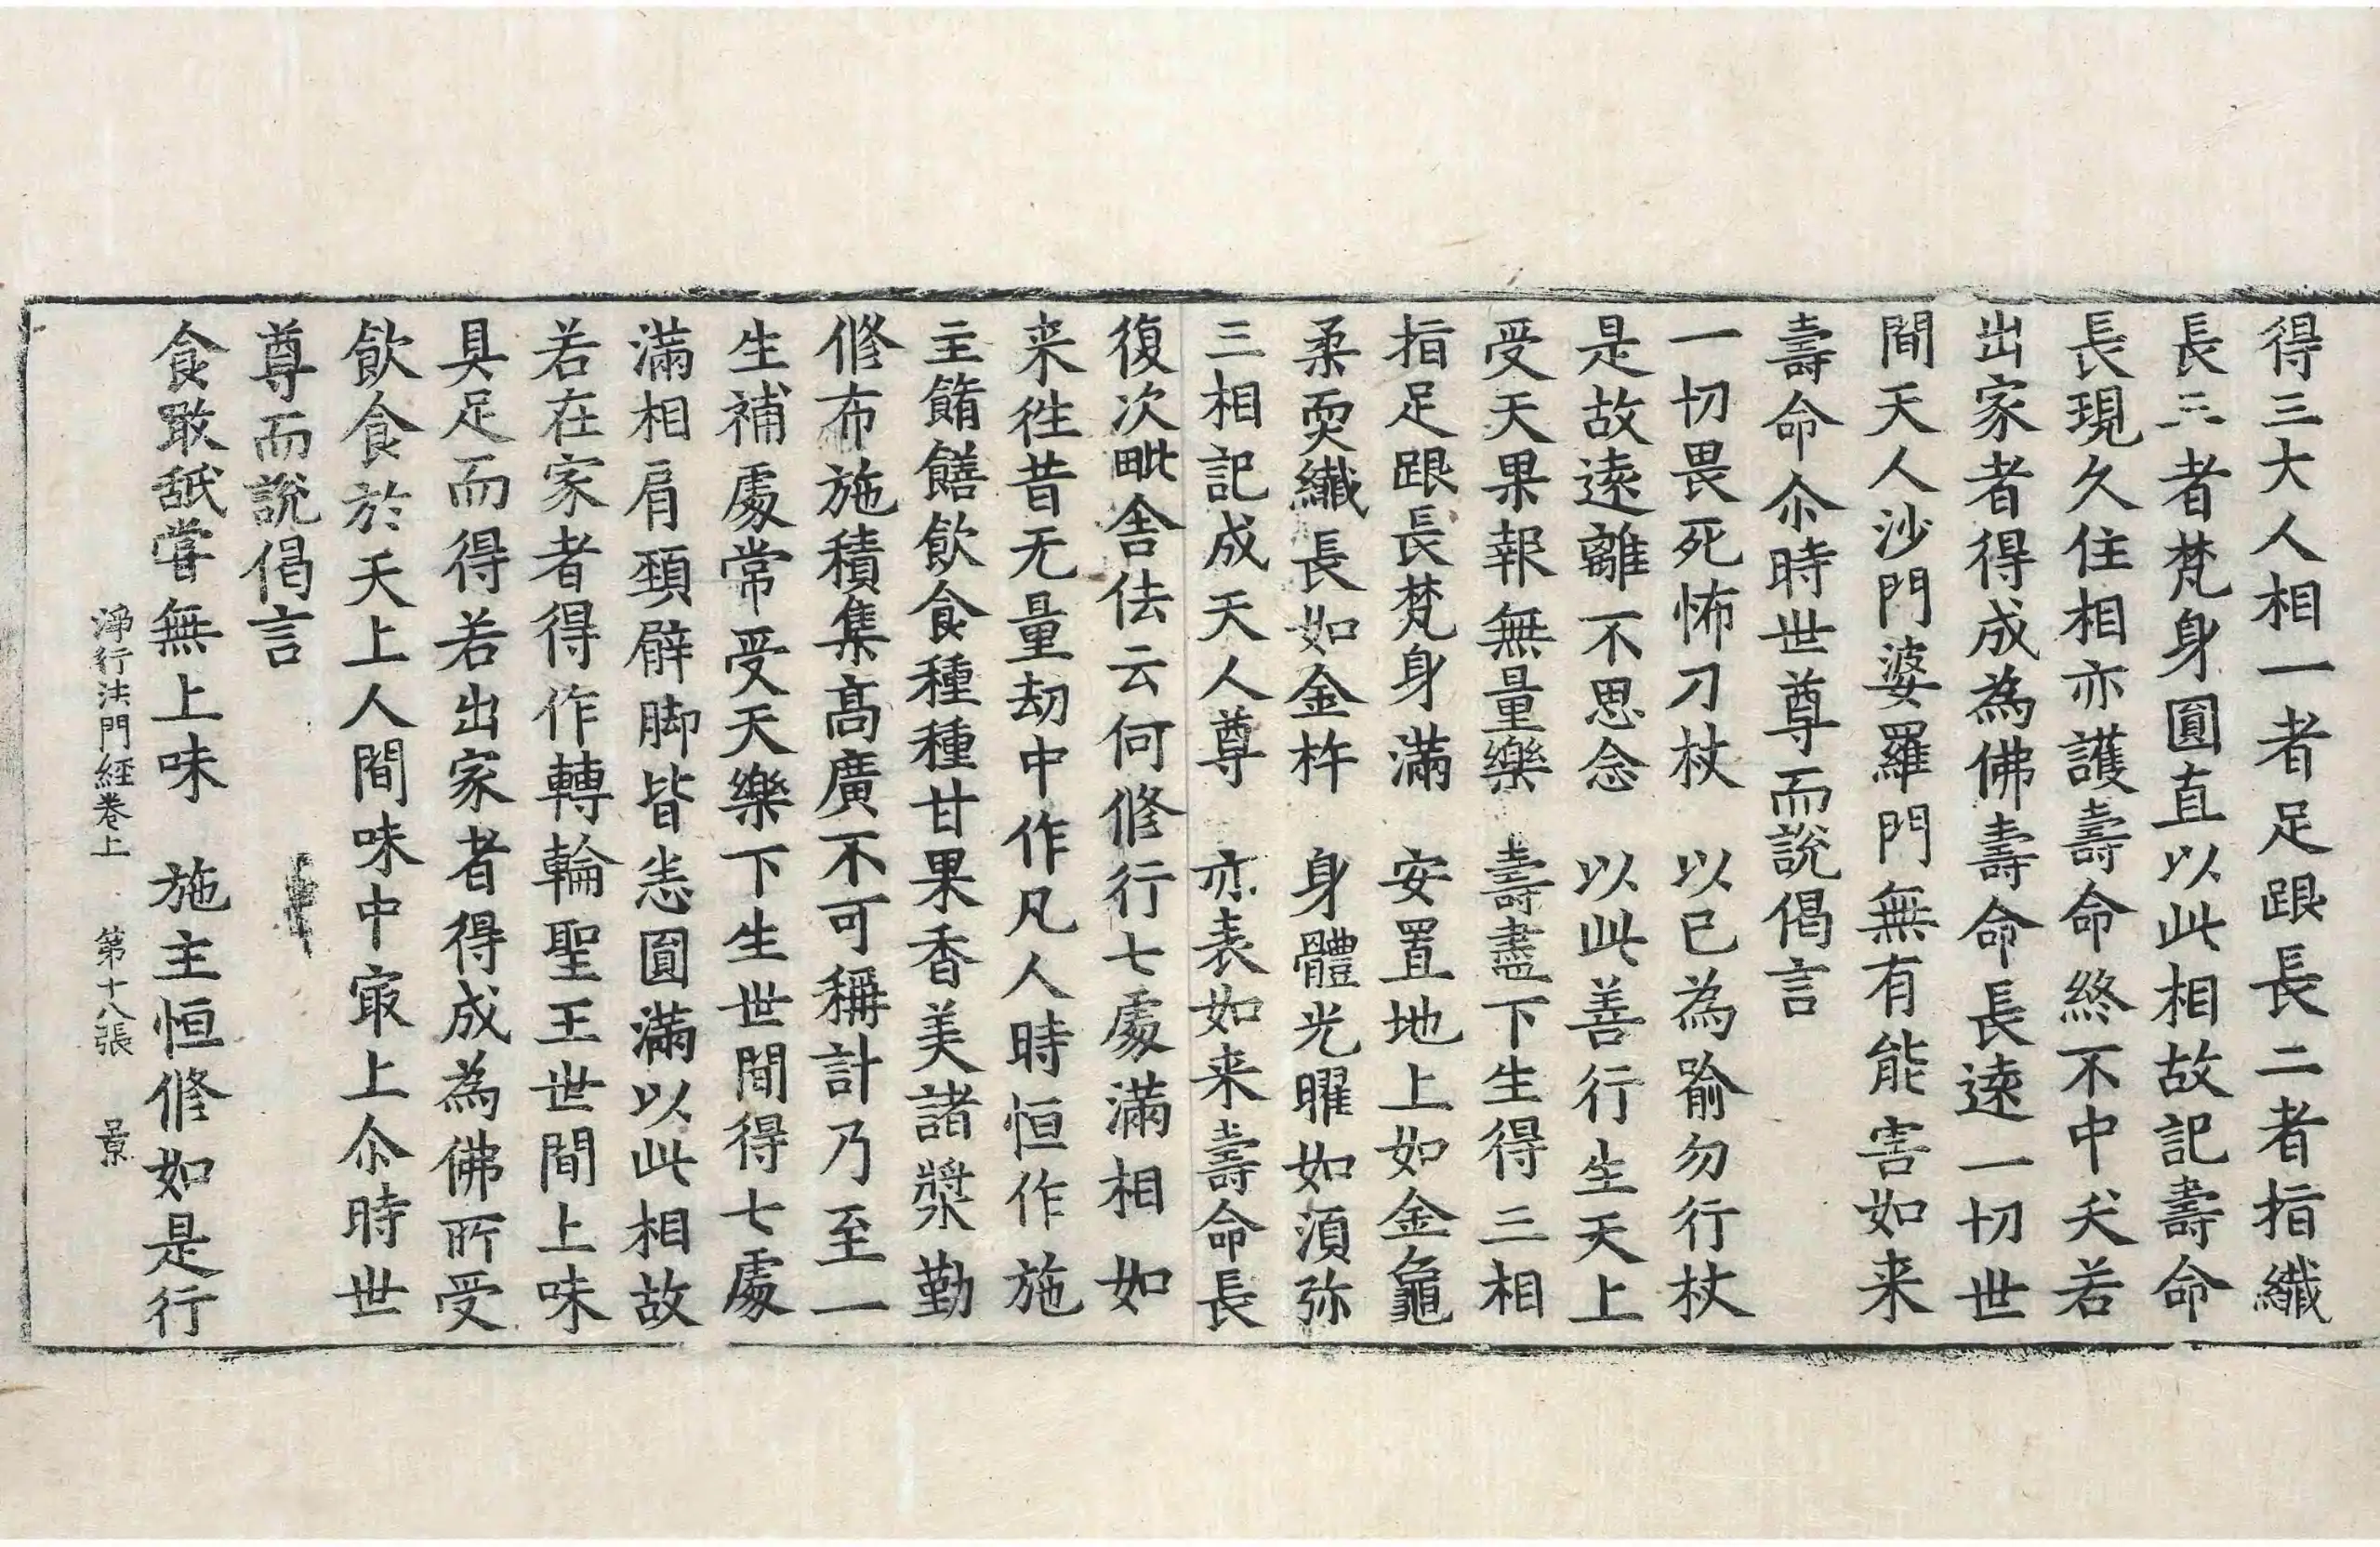 得三大人相一者足跟長二者指纖
長三者梵身圓直以此相故記壽命
長現久住相亦護壽命終不中夭若
出家者得成為佛壽命長遠一切世
間天人沙門婆羅門無有能害如来
壽命尒時世尊而說偈言
一切畏死怖刀杖　以已為喻勿行杖
是故遠離不思念　以此善行生天上
受天果報無量樂　壽盡下生得三相
指足跟長梵身滿　安置地上如金龜
柔耎纖長如金杵　身體光曜如湏弥
三相記成天人尊　亦表如来壽命長
復次毗舍佉云何修行七處滿相如
来徃昔无量劫中作凡人時恒作施
主餚饍飲食種種甘果香美諸漿勤
修布施積集髙廣不可稱計乃至一
生補處常受天樂下生世間得七處
滿相肩頸臂脚皆悉圓滿以此相故
若在家者得作轉輪聖王世間上味
具足而得若出家者得成為佛所受
飲食於天上人間味中㝡上尒時世
尊而說偈言
食敢舐嘗無上味　施主恒修如是行
淨行法門經卷上　第十八張　景